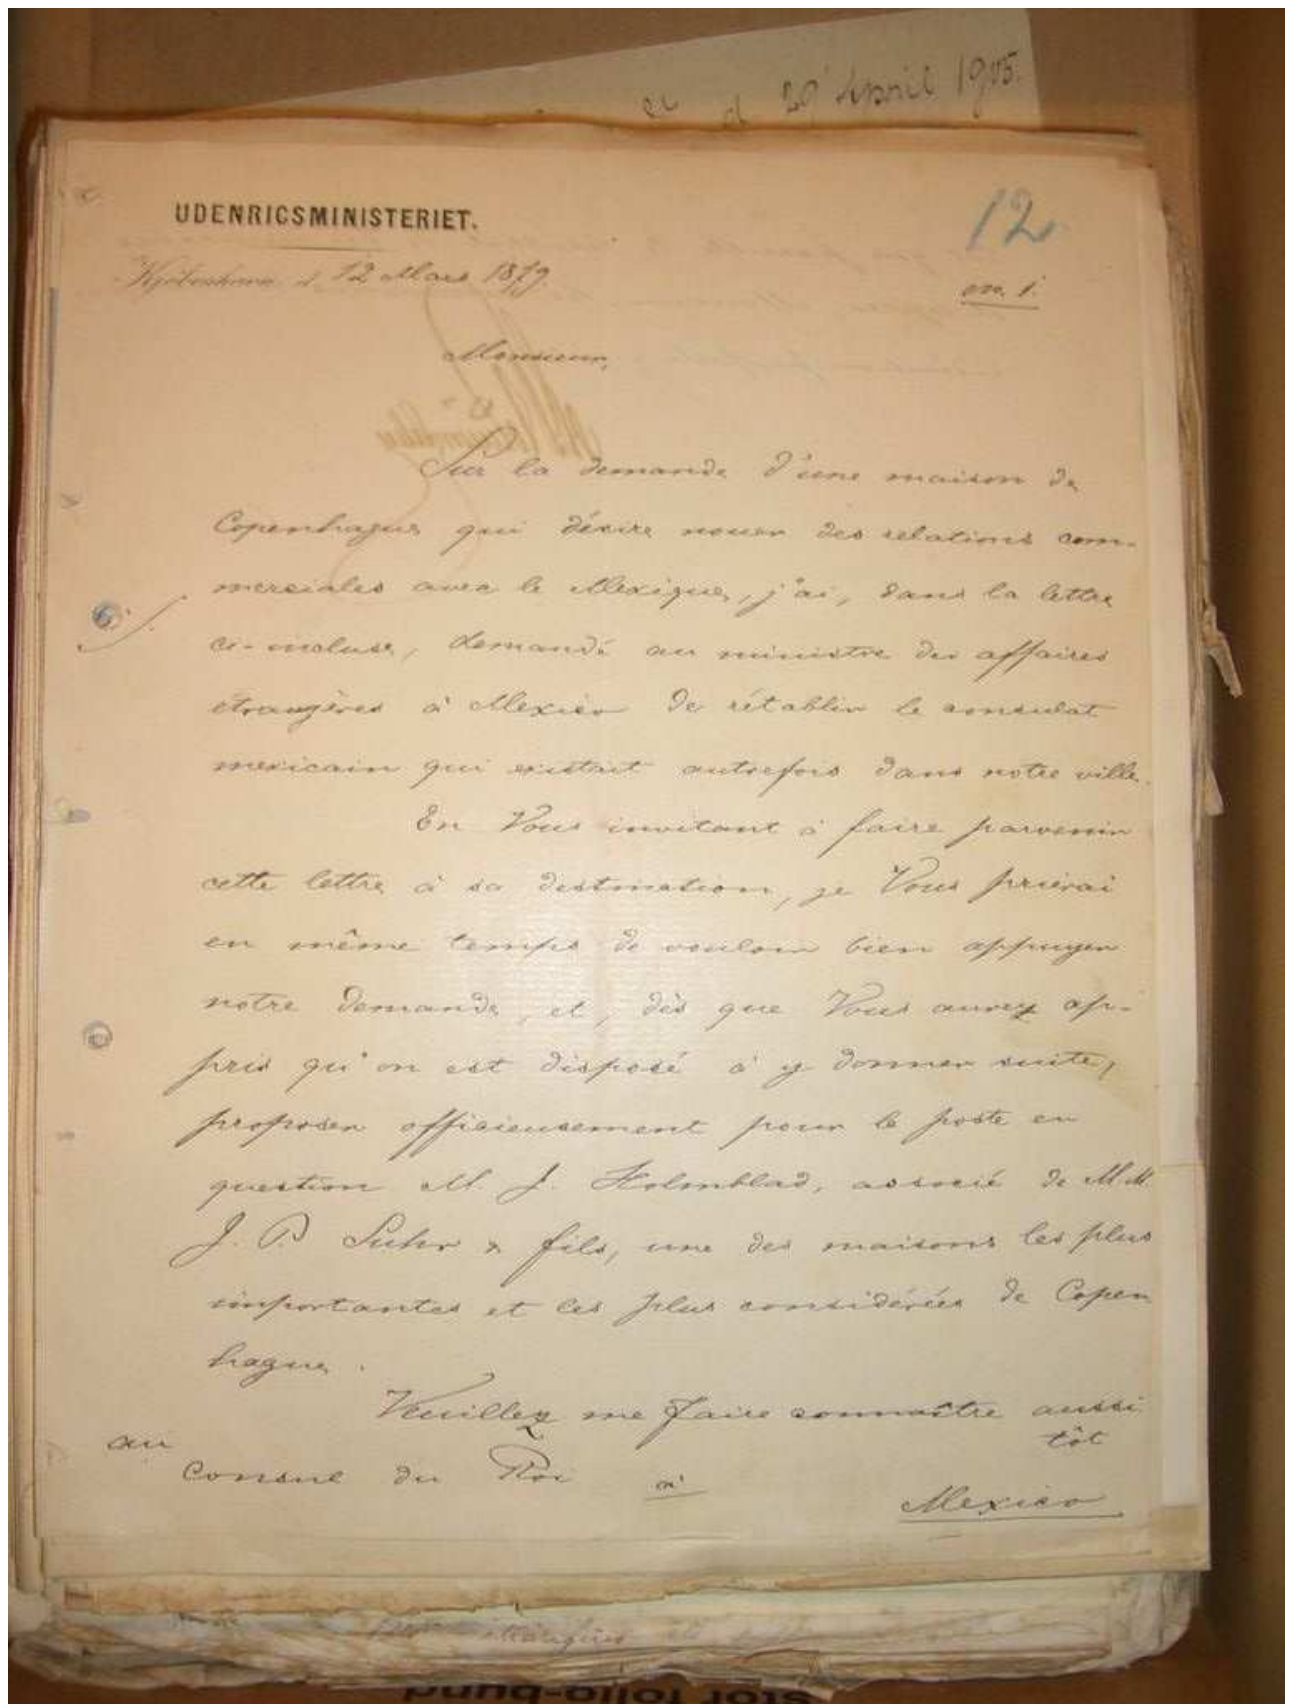 d 29 April 1905.
UDENRIGSMINISTERIET.
12
Kjøbenhavn d. 12 Mars 1879.
on. 1.
Monsieur,
Sur la demande d'une maison de
Copenhague qui désire nouer des relations com-
merciales avec le Mexique, j'ai, dans la lettre
ci-incluse, demandé au ministre des affaires
étrangères à Mexico de rétablir le consulat
mexicain qui existait autrefois dans notre ville.
En Vous invitant à faire parvenir
cette lettre à sa destination, je Vous prierai
en même temps de vouloir bien appuyer
notre demande, et, dès que Vous aurez ap-
pris qu'on est disposé à y donner suite,
proposer officieusement pour le poste en
question M. J. Holmblad, associé de M.M.
J. P. Suhr & fils, une des maisons les plus
importantes et les plus considérées de Copen
hague.
Veuillez me faire connaître aussi
tôt
au
Consul du Roi à
Mexico
étrangères
stor folio-bund